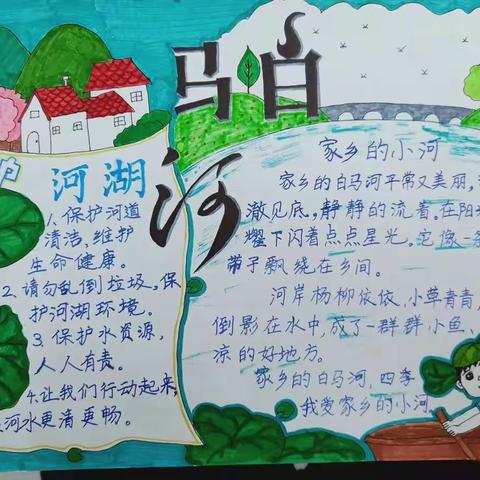 马白
河
护
河湖
1.保护河道
清洁,维护
生命健康。
2.请勿乱倒垃圾,保
护河湖环境。
3.保护水资源,
人人有责。
4.让我们行动起来,
河水更清更畅。
家乡的小河
家乡的白马河平常又美丽,
澈见底,静静的流着.在阳
耀下闪着点点星光。它像一条
带子飘绕在乡间。
河岸杨柳依依、小草青青,
倒影在水中,成了一群群小鱼、
凉的好地方。
家乡的白马河,四季
我爱家乡的小河